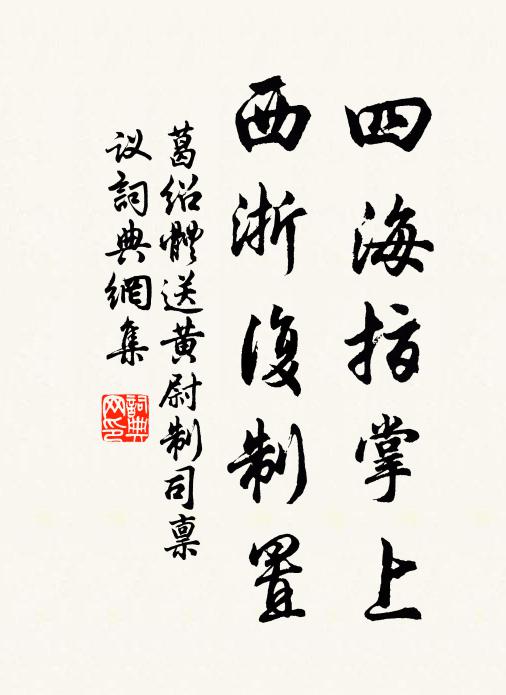 四海指掌上
西浙復制置
葛绍體送黄尉制司禀
议詞典網集
詞典网印